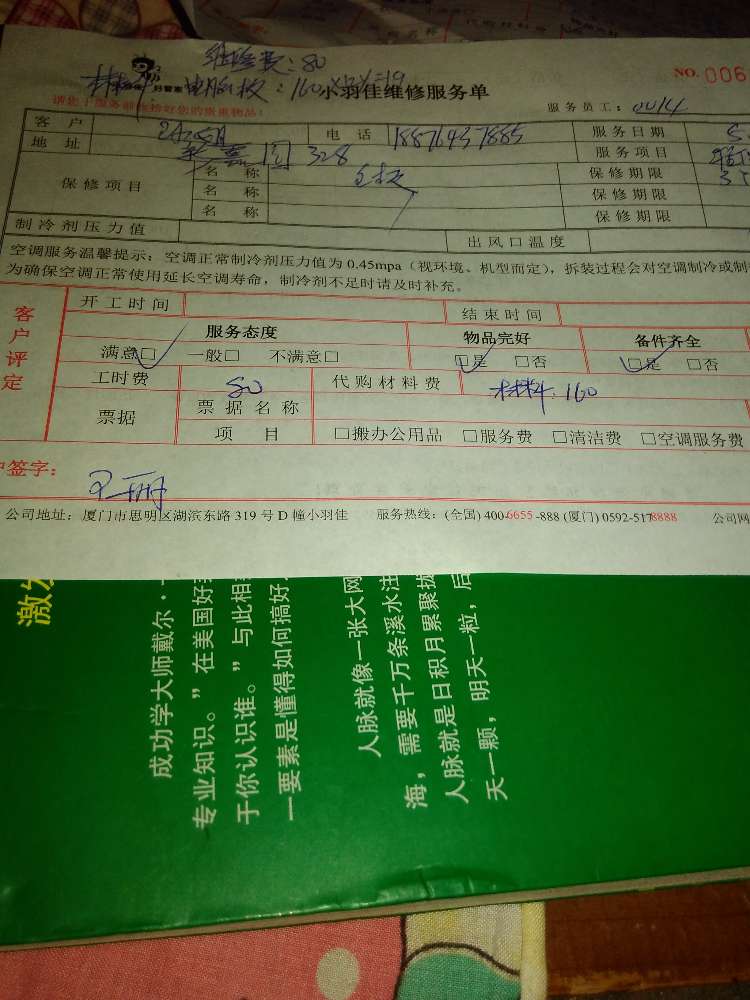 维修费：80
材料 电脑板：160
好管家
小羽佳维修服务单
NO. 006
请您于服务前收拾好您的贵重物品！
服务员工：0014
客户
电话 18876437885
服务日期
地址
328
服务项目
保修项目
名称
保修期限
名称
保修期限
名称
保修期限
制冷剂压力值
出风口温度
空调服务温馨提示：空调正常制冷剂压力值为 0.45mpa（视环境、机型而定），拆装过程会对空调制冷或制
为确保空调正常使用延长空调寿命，制冷剂不足时请及时补充。
客户评定
开工时间
结束时间
服务态度
物品完好
备件齐全
满意□ 一般□ 不满意□
□是 □否
□是 □否
工时费 80
代购材料费 材料：160
票据
票据名称
项目
□搬办公用品 □服务费 □清洁费 □空调服务费
户签字：
公司地址：厦门市思明区湖滨东路 319 号 D 幢小羽佳 服务热线：(全国) 400-6655-888 (厦门) 0592-5178888 公司网
激发
成功学大师戴尔·
专业知识。”在美国好
于你认识谁。”与此相
一要素是懂得如何搞好
人脉就像一张大网
，需要千万条溪水注
海，人脉就是日积月累聚拔
天一颗，明天一粒，后